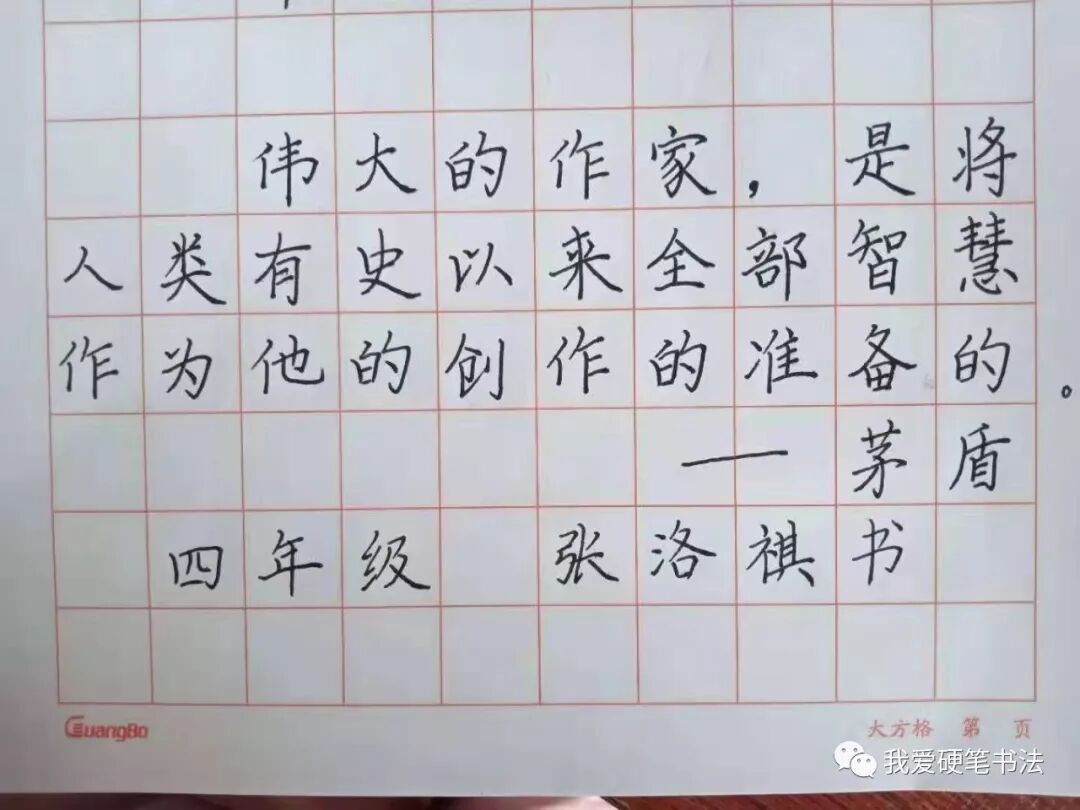 伟大的作家，是将
人类有史以来全部智慧
作为他的创作的准备的。
——茅盾
四年级 张洛祺书
GuangBo
大方格 第 页
我爱硬笔书法